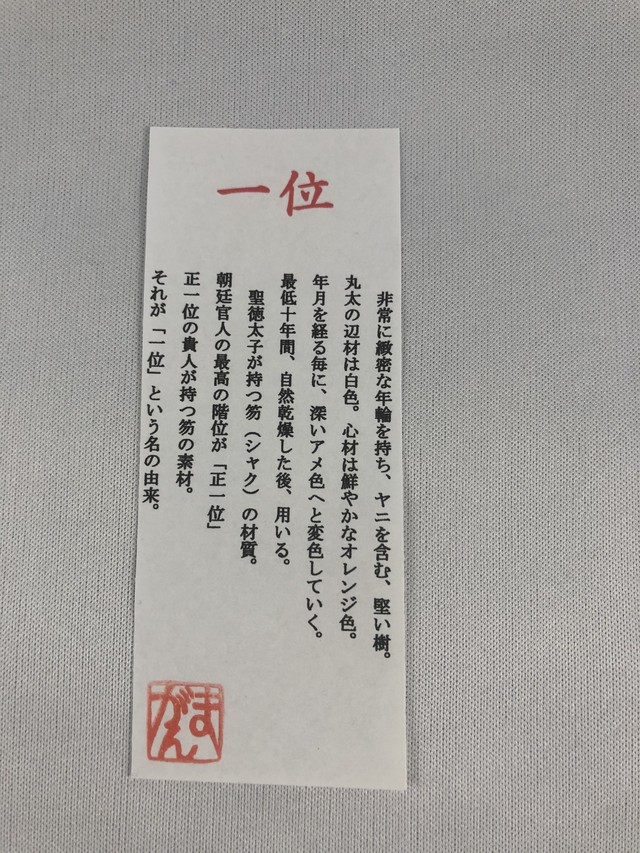 一位
非常に緻密な年輪を持ち、ヤニを含む、堅い樹。
丸太の辺材は白色。心材は鮮やかなオレンジ色。
年月を経る毎に、深いアメ色へと変色していく。
最低十年間、自然乾燥した後、用いる。
聖徳太子が持つ笏（シャク）の材質。
朝廷官人の最高の階位が「正一位」
正一位の貴人が持つ笏の素材。
それが「一位」という名の由来。
まがん